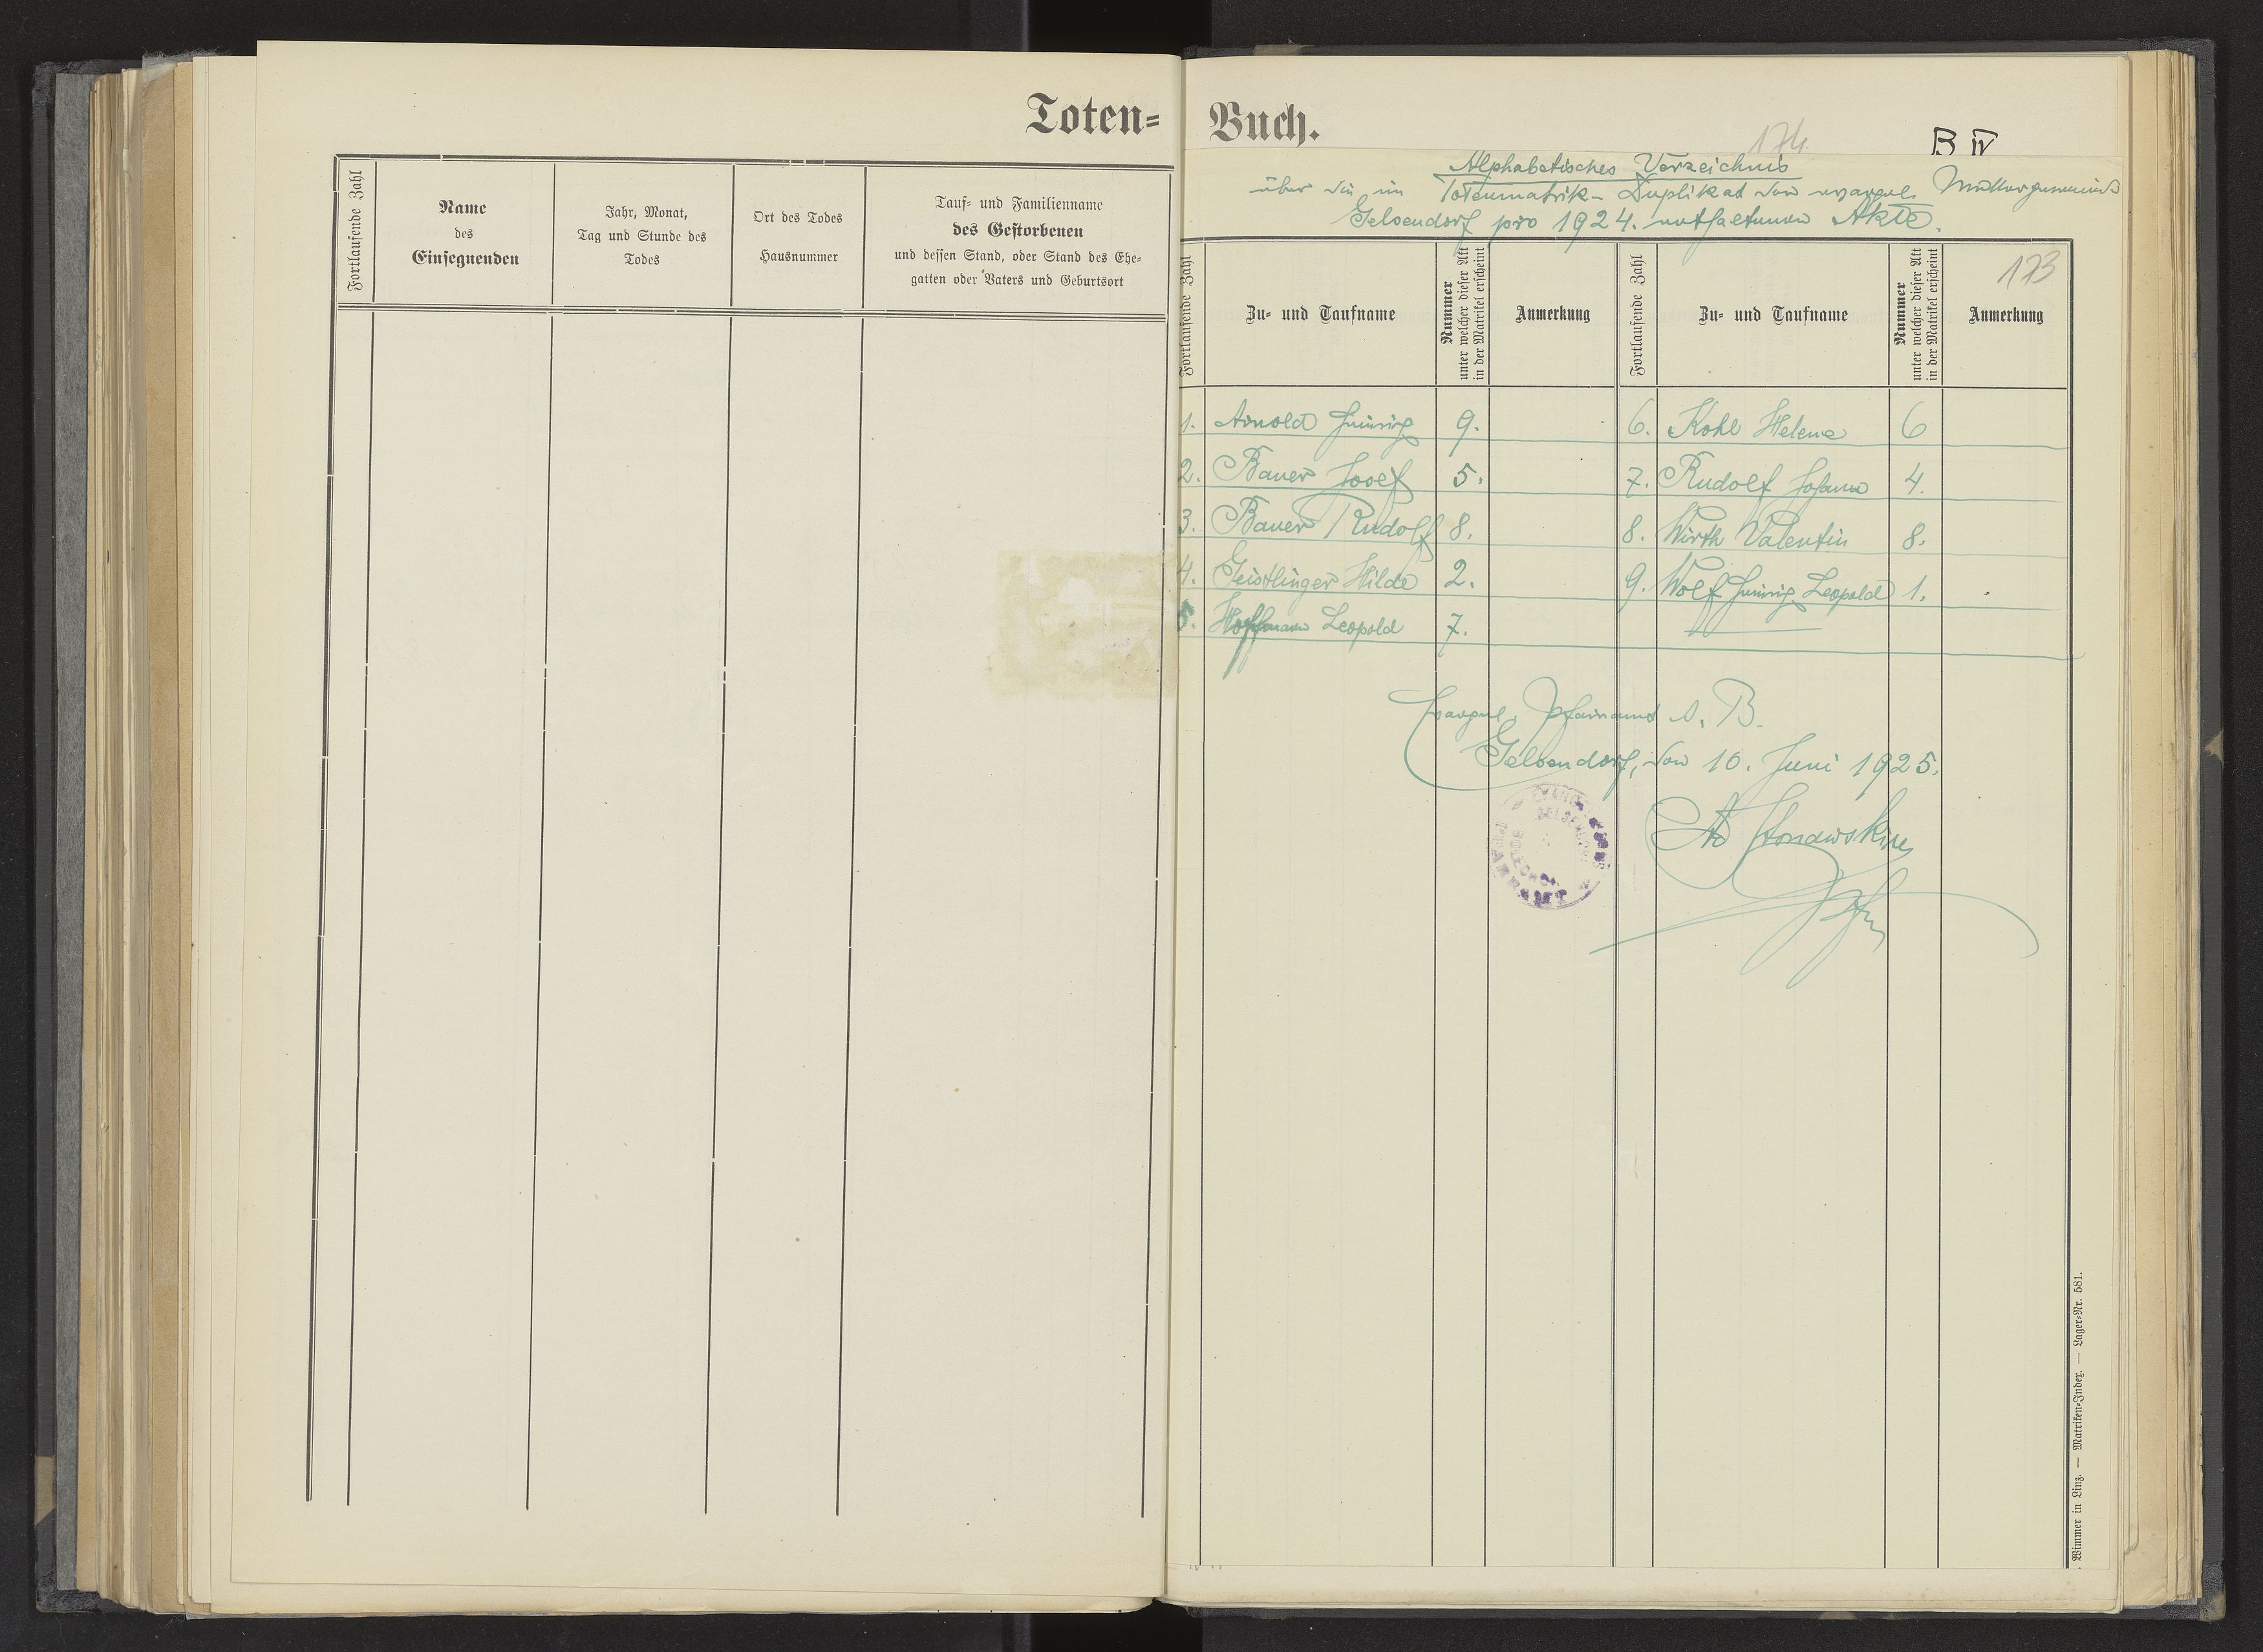 Toten=
Fortlaufende Zahl
Name
des
Einsegnenden
Jahr, Monat,
Tag und Stunde des
Todes
Ort des Todes
Hausnummer
Tauf= und Familienname
des Gestorbenen
und dessen Stand, oder Stand des Ehe=
gatten oder Vaters und Geburtsort
Buch.
174.
B IV
Alphabetisches Verzeichnis
über die im Totenmatrik-Duplikat der evangel. Muttergemeinde
Gelsendorf pro 1924. enthaltenen Akte.
173
Fortlaufende Zahl
Zu= und Taufname
Nummer
unter welcher dieser Akt
in der Matrikel erscheint
Anmerkung
Fortlaufende Zahl
Zu= und Taufname
Nummer
unter welcher dieser Akt
in der Matrikel erscheint
Anmerkung
1. Arnold Heinrich 9.
2. Bauer Josef 5.
3. Bauer Rudolf 8.
4. Geistlinger Hilde 2.
5. Hoffmann Leopold 7.
6. Kohl Helene 6
7. Rudolf Johann 4.
8. Wirth Valentin 8.
9. Wolf Heinrich Leopold 1.
Evangel. Pfarramt A. B.
Gelsendorf, den 10. Juni 1925.
Wimmer in Linz. — Matriken=Index. — Lager=Nr. 581.